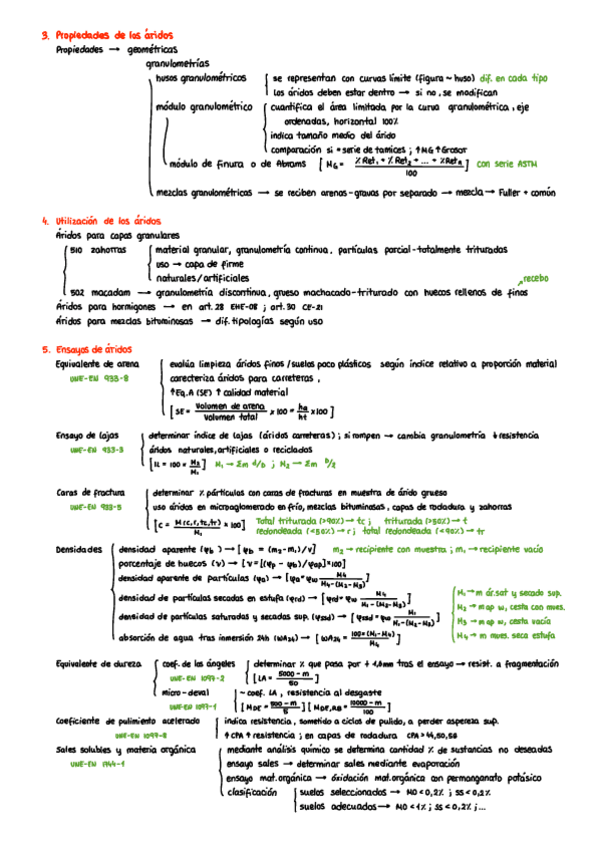 3. Propiedades de los áridos
Propiedades → geométricas
granulometrías
husos granulométricos se representan con curvas límite (figura ~ huso) dif. en cada tipo
los áridos deben estar dentro → si no, se modifican
módulo granulométrico cuantifica el área limitada por la curva granulométrica, eje
ordenadas, horizontal 100%
indica tamaño medio del árido
comparación si = serie de tamices ; ↑MG ↑Grosor
módulo de finura o de Abrams [MG = (% Ret1 + % Ret2 + ... + % Retn) / 100] con serie ASTM
mezclas granulométricas → se reciben arenas-gravas por separado → mezcla → Fuller + común
4. Utilización de los áridos
Áridos para capas granulares
510 zahorras material granular, granulometría continua, partículas parcial-totalmente trituradas
uso → capa de firme
naturales/artificiales
recebo
502 macadam → granulometría discontinua, grueso machacado-triturado con huecos rellenos de finos
Áridos para hormigones → en art. 28 EHE-08 ; art. 30 CE-21
Áridos para mezclas bituminosas → dif. tipologías según uso
5. Ensayos de áridos
Equivalente de arena evalúa limpieza áridos finos / suelos poco plásticos según índice relativo a proporción material
UNE-EN 933-8 carecteriza áridos para carreteras,
↑Eq.A (SE) ↑ calidad material
[SE = Volumen de arena / Volumen total x 100 = ha / ht x 100]
Ensayo de lajas determinar índice de lajas (áridos carreteras) ; si rompen → cambia granulometría ↓resistencia
UNE-EN 933-3 áridos naturales, artificiales o reciclados
[IL = 100 = M2 / M1] M1 → Σm d/D ; M2 → Σm D/2
Caras de fractura determinar % pártículas con caras de fracturas en muestra de árido grueso
UNE-EN 933-5 uso áridos en microaglomerado en frío, mezclas bituminosas, capas de rodadura y zahorras
[C = M(c,r,tc,tr) / M1 x 100] Total triturada (>90%) → tc ; triturada (>50%) → t
redondeada (<50%) → r ; total redondeada (<90%) → tr
Densidades densidad aparente (ψb) → [ψb = (m2-m1)/V] m2 → recipiente con muestra ; m1 → recipiente vacío
porcentaje de huecos (v) → [v = [(ψp - ψb)/ψp] x 100]
densidad aparente de partículas (ψa) → [ψa = ψw M4 / M4-(M2-M3)]
densidad de partículas secadas en estufa (ψrd) → [ψrd = ψw M4 / M1-(M2-M3)]
densidad de partículas saturadas y secadas sup. (ψssd) → [ψssd = ψw M1 / M1-(M2-M3)]
absorción de agua tras inmersión 24h (WA24) → [WA24 = 100 x (M1-M4) / M4]
M1 → m ár.sat y secado sup.
M2 → m ap w, cesta con mues.
M3 → m ap w, cesta vacía
M4 → m mues. seca estufa
Equivalente de dureza coef. de los ángeles determinar % que pasa por ≠ 1,6mm tras el ensayo → resist. a fragmentación
UNE-EN 1097-2 [LA = 5000 - m / 50]
micro-deval ~ coef. LA, resistencia al desgaste
UNE-EN 1097-1 [MDE = 500 - m / 5] [MDE,RB = 10000 - m / 100]
Coeficiente de pulimiento acelerado indica resistencia, sometido a ciclos de pulido, a perder aspereza sup.
UNE-EN 1097-8 ↑ CPA ↑ resistencia ; en capas de rodadura CPA > 44,50,56
Sales solubles y materia orgánica mediante análisis químico se determina cantidad % de sustancias no deseadas
UNE-EN 1744-1 ensayo sales → determinar sales mediante evaporación
ensayo mat.orgánica → óxidación mat.orgánica con permanganato potásico
clasificación suelos seleccionados → MO < 0,2% ; SS < 0,2%
suelos adecuados → MO < 1% ; SS < 0,2% ; ...